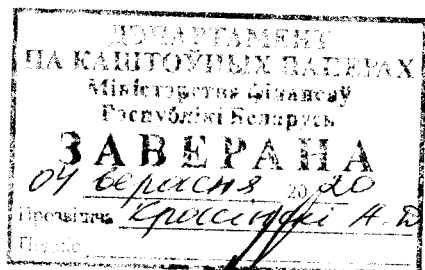 ДЭПАРТАМЕНТ
ПА КАШТОЎНЫХ ПАПЕРАХ
Міністэрства фінансаў
Рэспублікі Беларусь
ЗАВЕРАНА
04 верасня 2020
Прозвішча
Подпіс